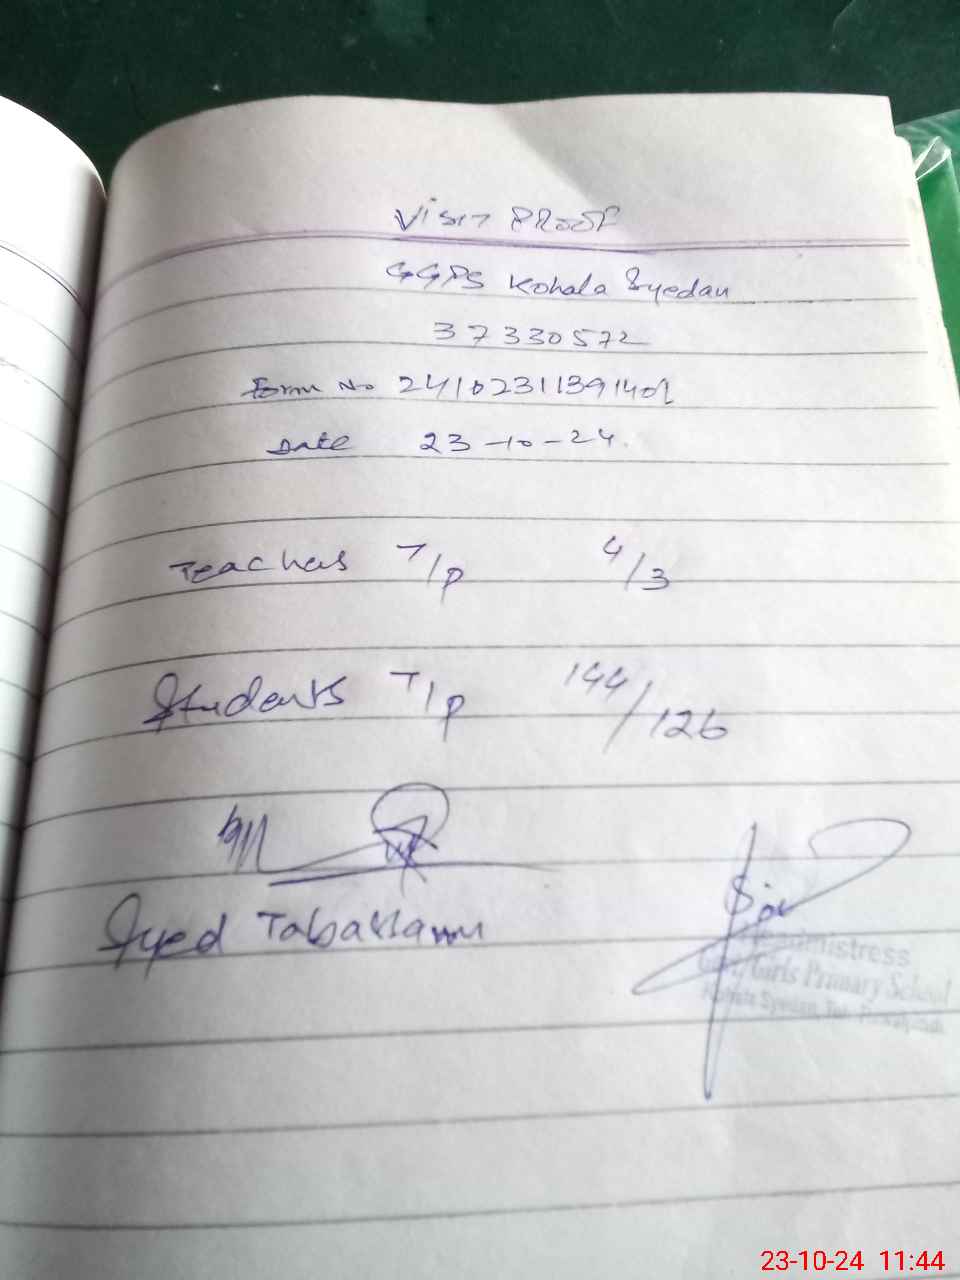 Visit PROOF
GGPS Kohala Syedan
37330572
Form No 24102311391401
Date 23-10-24
Teachers T/P 4/3
Students T/P 144/126
Syed Tabassam
Headmistress
Govt. Girls Primary School
Kohala Syedan,
23-10-24 11:44